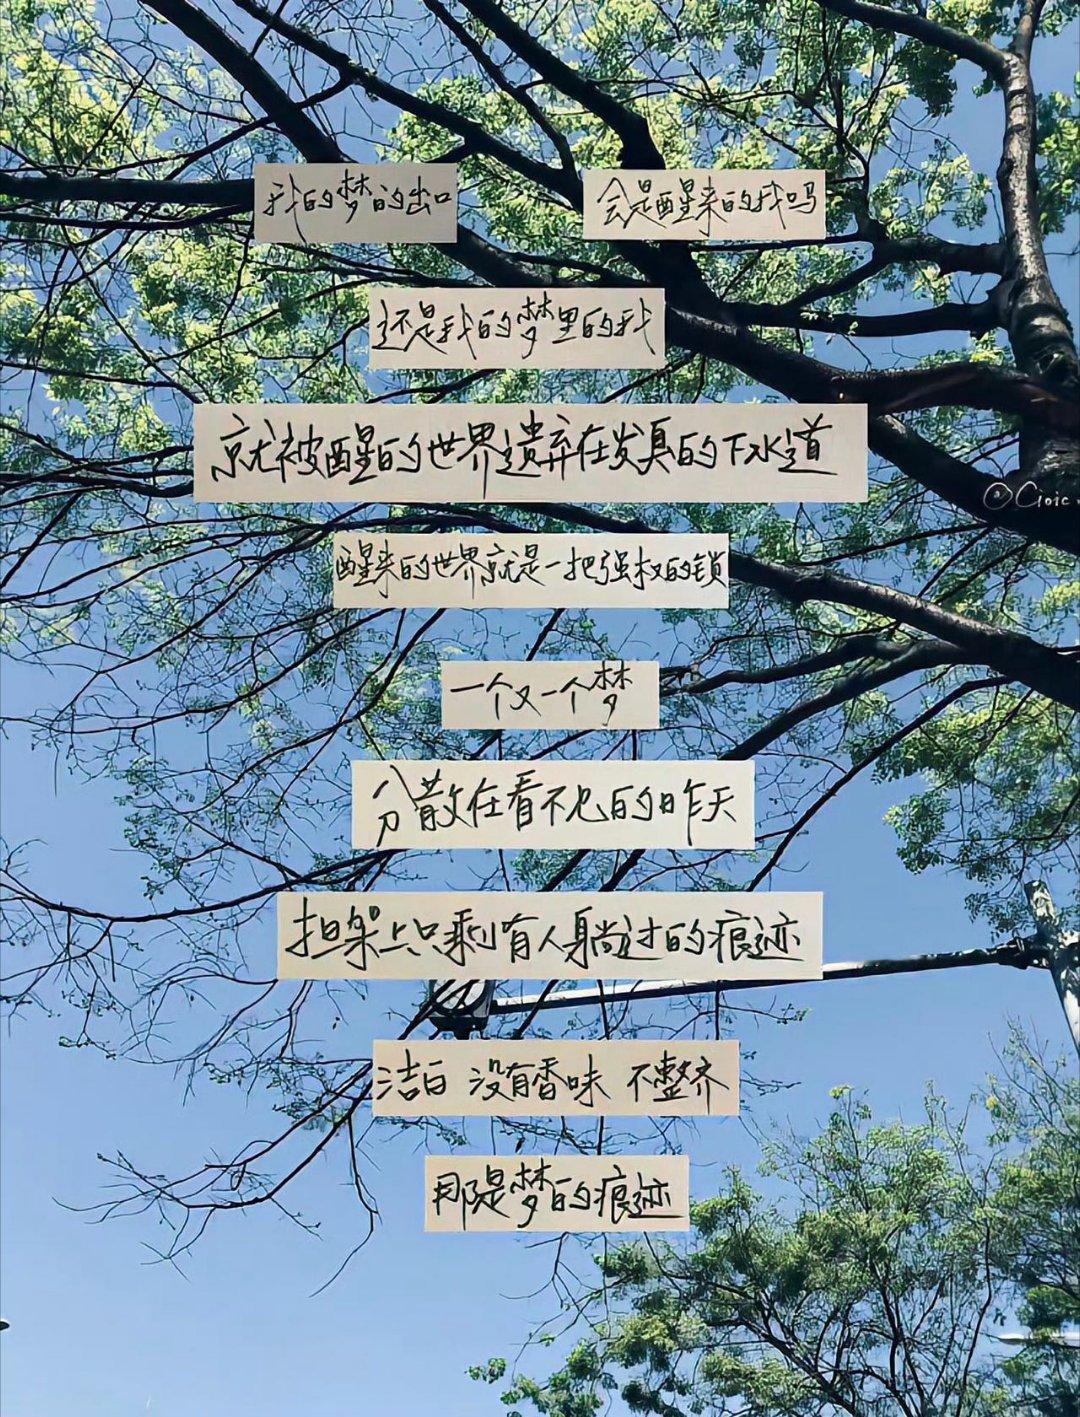 我的梦的出口 会是醒来的我吗
还是我的梦里的我
就被醒的世界遗弃在发真的下水道
醒来的世界就是一把强权的锁
一个又一个梦
分散在看不见的昨天
担架上只剩有人躺过的痕迹
洁白 没有香味 不整齐
那是梦的痕迹
@Cioic